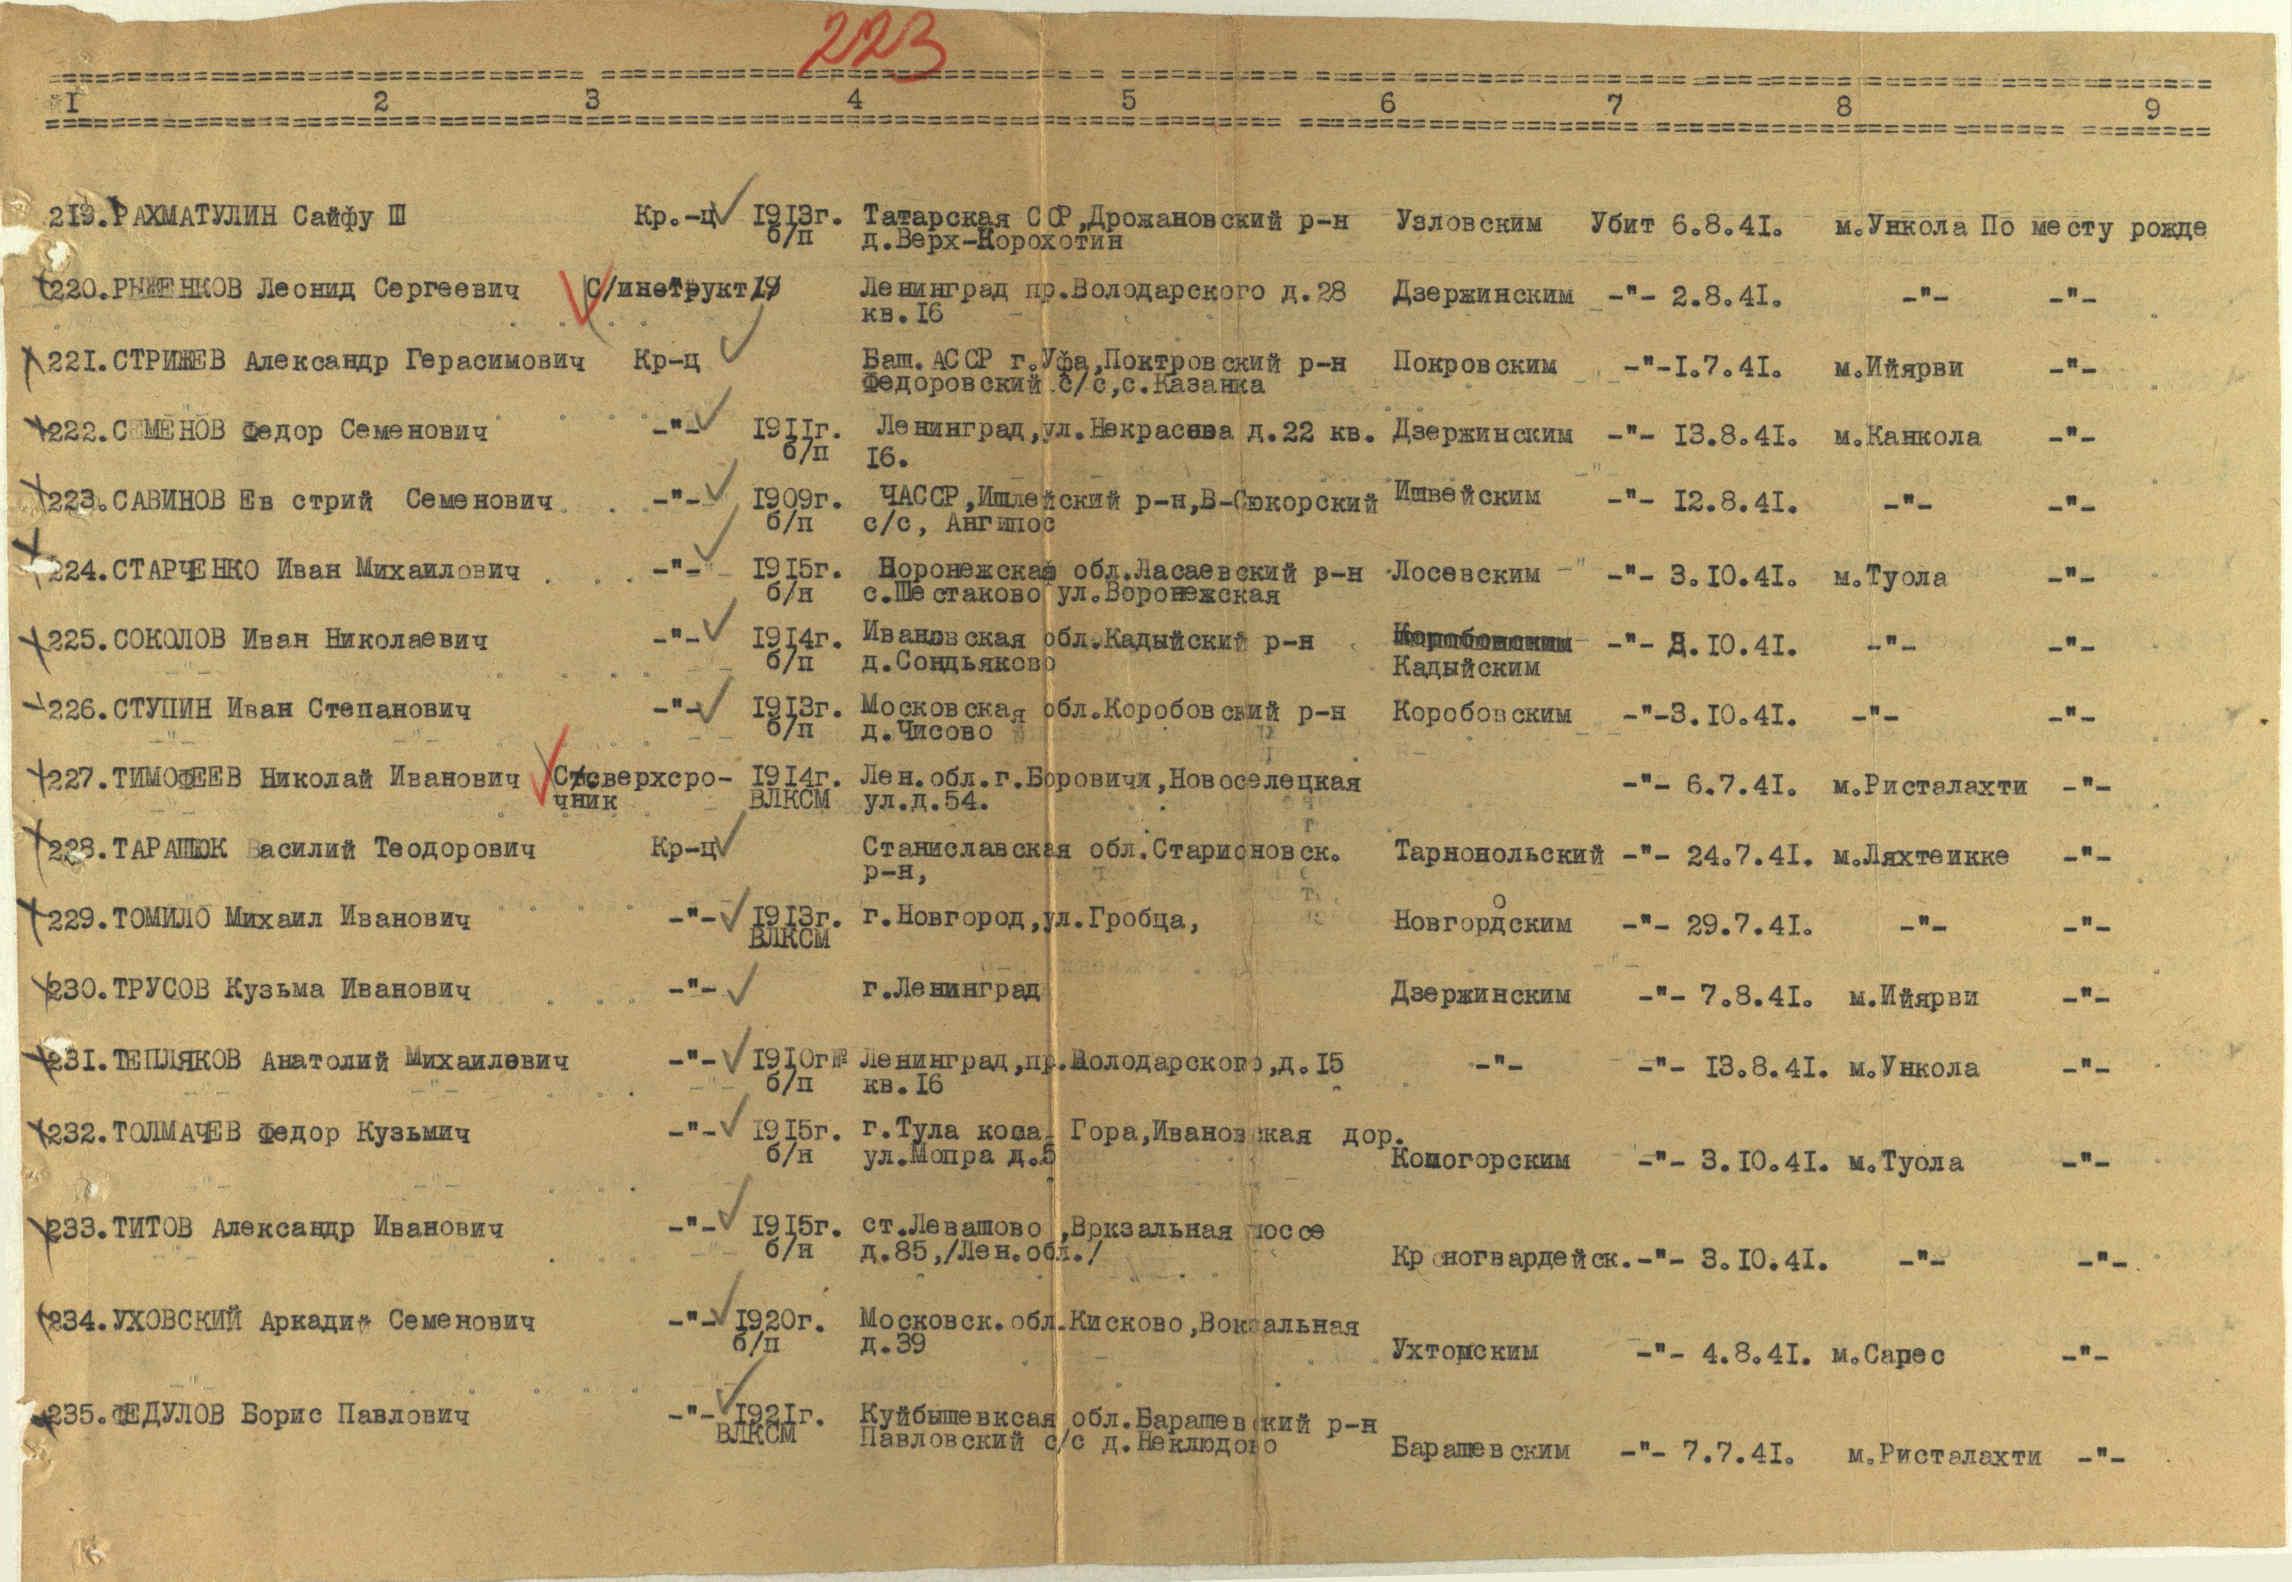 223
I 2 3 4 5 6 7 8 9
219.РАХМАТУЛИН Сайфу Ш Кр.-ц 1913г. Татарская ССР,Дрожановский р-н Узловским Убит 6.8.41. м.Ункола По месту рожде
б/п д.Верх-Корохотин
220.РЫЖЕНКОВ Леонид Сергеевич С/инструкт Ленинград пр.Володарского д.28 Дзержинским -"- 2.8.41. -"- -"-
кв.16
221.СТРИЖЕВ Александр Герасимович Кр-ц Баш.АССР г.Уфа,Поктровский р-н Покровским -"-1.7.41. м.Ийярви -"-
Федоровский с/с,с.Казанка
222.СЕМЕНОВ Федор Семенович -"- 1911г. Ленинград,ул.Некрасова д.22 кв. Дзержинским -"- 13.8.41. м.Канкола -"-
б/п 16.
223.САВИНОВ Ев стрий Семенович -"- 1909г. ЧАССР,Ишлейский р-н,В-Сюкорский Ишвейским -"- 12.8.41. -"- -"-
б/п с/с, Ангипос
224.СТАРЧЕНКО Иван Михаилович -"- 1915г. Воронежская обл.Ласаевский р-н Лосевским -"- 3.10.41. м.Туола -"-
б/н с.Шестаково ул.Воронежская
225.СОКОЛОВ Иван Николаевич -"- 1914г. Ивановская обл.Кадыйский р-н Коробовским -"- 3.10.41. -"- -"-
б/п д.Сондьяково Кадыйским
226.СТУПИН Иван Степанович -"- 1913г. Московская обл.Коробовский р-н Коробовским -"-3.10.41. -"- -"-
б/п д.Чисово
227.ТИМОФЕЕВ Николай Иванович Ст/сверхсро- 1914г. Лен.обл.г.Боровичи,Новоселецкая -"- 6.7.41. м.Ристалахти -"-
чник ВЛКСМ ул.д.54.
228.ТАРАШЮК Василий Теодорович Кр-ц Станиславская обл.Старионовск. Тарнонольский -"- 24.7.41. м.Ляхтеикке -"-
р-н,
229.ТОМИЛО Михаил Иванович -"- 1913г. г.Новгород,ул.Гробца, Новгородским -"- 29.7.41. -"- -"-
ВЛКСМ
230.ТРУСОВ Кузьма Иванович -"- г.Ленинград Дзержинским -"- 7.8.41. м.Ийярви -"-
231.ТЕПЛЯКОВ Анатолий Михаилович -"- 1910г Ленинград,пр.Володарского,д.15 -"- -"- 13.8.41. м.Ункола -"-
б/п кв.16
232.ТОЛМАЧЕВ Федор Кузьмич -"- 1915г. г.Тула коса Гора,Ивановская дор.
б/н ул.Мопра д.5 Комогорским -"- 3.10.41. м.Туола -"-
233.ТИТОВ Александр Иванович -"- 1915г. ст.Левашово,Вркзальная шоссе
б/н д.85,/Лен.обл./ Красногвардейск.-"- 3.10.41. -"- -"-
234.УХОВСКИЙ Аркадий Семенович -"- 1920г. Московск.обл.Кисково,Вокзальная
б/п д.39 Ухтомским -"- 4.8.41. м.Сарес -"-
235.ФЕДУЛОВ Борис Павлович -"- 1921г. Куйбышевксая обл.Барашевский р-н
ВЛКСМ Павловский с/с д.Неклюдово Барашевским -"- 7.7.41. м.Ристалахти -"-